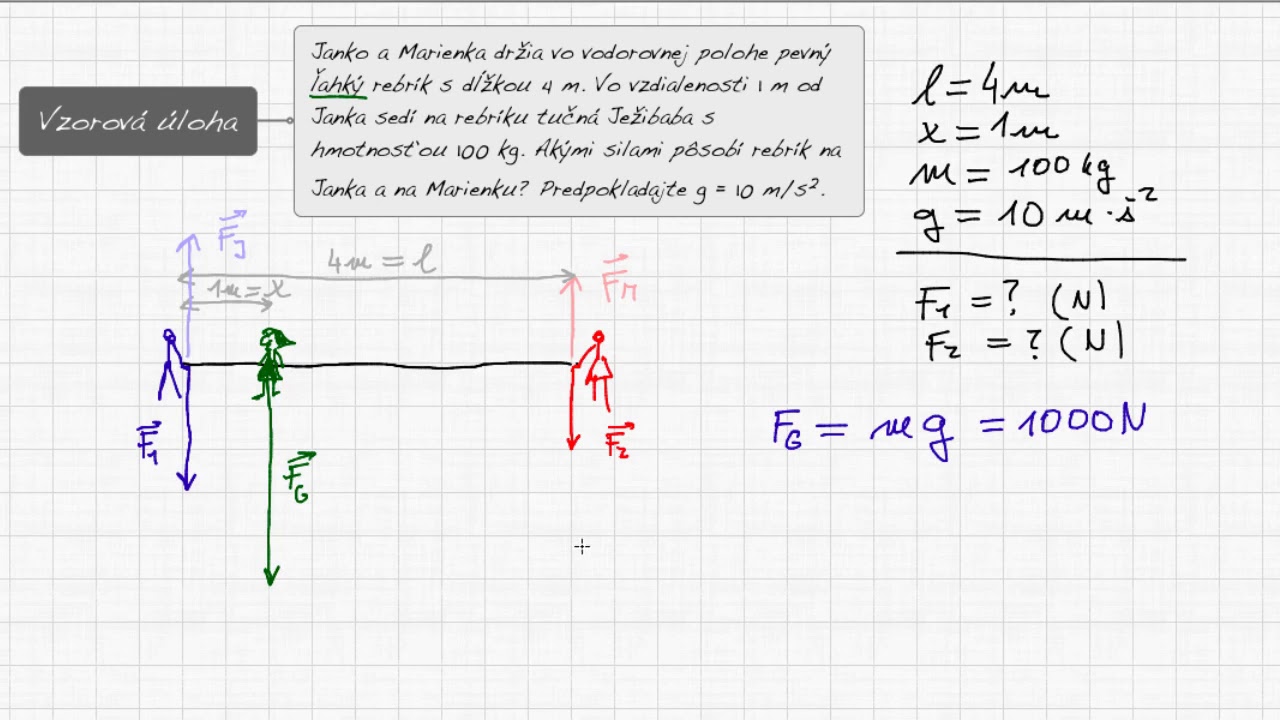 Vzorová úloha
Janko a Marienka držia vo vodorovnej polohe pevný
ľahký rebrík s dĺžkou 4 m. Vo vzdialenosti 1 m od
Janka sedí na rebríku tučná Ježibaba s
hmotnosťou 100 kg. Akými silami pôsobí rebrík na
Janka a na Marienku? Predpokladajte g = 10 m/s².
l = 4m
x = 1m
m = 100 kg
g = 10 m · s⁻²
F₁ = ? (N)
F₂ = ? (N)
F_G = m g = 1000N
F_J
4m = l
1m = x
F_M
F₁
F_G
F₂